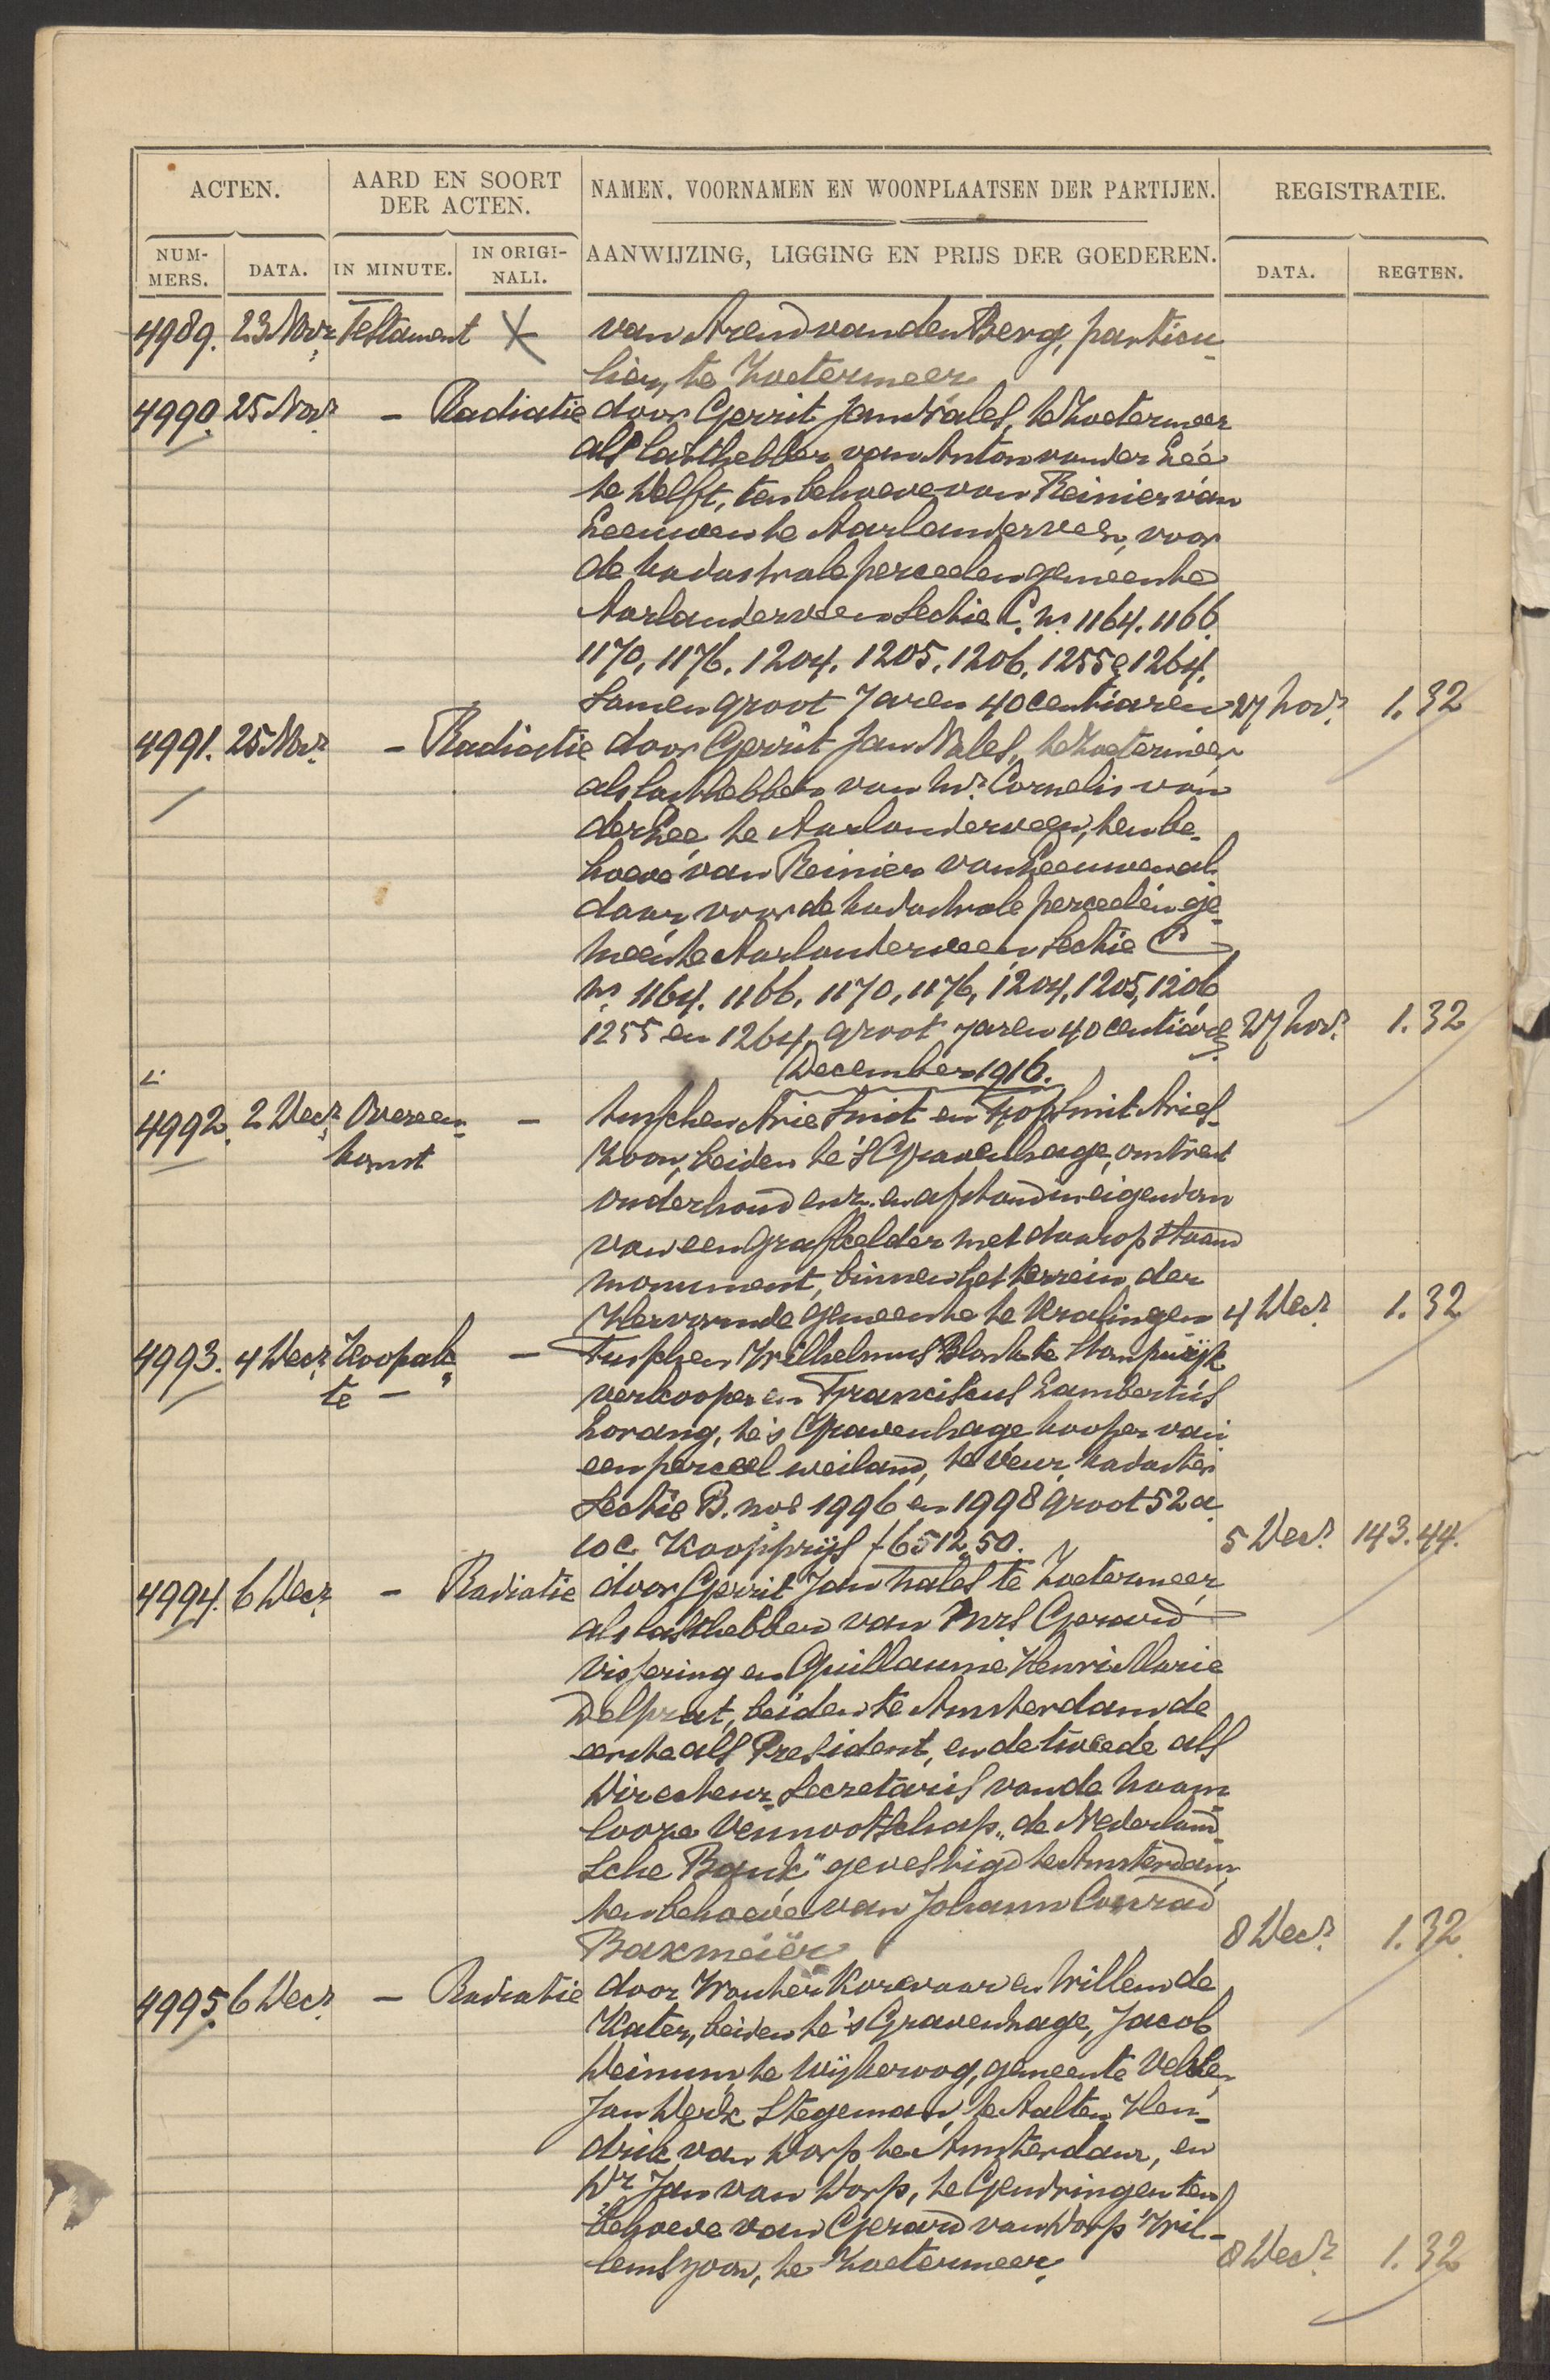 ACTEN.
AARD EN SOORT DER ACTEN.
NAMEN, VOORNAMEN EN WOONPLAATSEN DER PARTIJEN.
REGISTRATIE.
NUM-MERS.
DATA.
IN MINUTE.
IN ORIGI-NALI.
AANWIJZING, LIGGING EN PRIJS DER GOEDEREN.
DATA.
REGTEN.
4989. 23 Novr. Testament X van Arend van den Berg, particu-
lier, te Zoetermeer
4990. 25 Novr. - Radiatie door Gerrit Jan Nales, te Zoetermeer
als lasthebber van Anton van der Lee
te Delft, ten behoeve van Reinier van
Leeuwen te Aarlanderveen, voor
de kadastrale perceelen gemeente
Aarlanderveen Sectie C. nos. 1164. 1166.
1170, 1176. 1204. 1205. 1206. 1255 & 1264.
Samen groot 7 aren 40 centiaren 27 Novr. 1.32
4991. 25 Novr. - Radiatie door Gerrit Jan Nales, te Zoetermeer
als lasthebber van Mr. Cornelis van
der Lee, te Aarlanderveen, ten be-
hoeve van Reinier van Leeuwen al-
daar, voor de kadastrale perceelen ge-
meente Aarlanderveen Sectie C
nos. 1164. 1166, 1170, 1176, 1204, 1205, 1206
1255 en 1264, groot 7 aren 40 centiare 27 Novr. 1.32
December 1916.
4992. 2 Decr. Overeen- - tusschen Arie Smit en Smit Aries-
komst zoon, beiden te 's Gravenhage, omtrent
onderhoud enz. en afstand in eigendom
van een grafkelder met daarop staand
monument, binnen het terrein der
Hervormde gemeente te Kralingen 4 Decr. 1.32
4993. 4 Decr. Koopak- - Tusschen Wilhelmus Blonk te Stompwijk
te - verkooper en Franciscus Lambertus
Lorang, te 's Gravenhage kooper van
een perceel weiland, te Veur, kadaster
Sectie B. nos 1996 en 1998 groot 52 a.
10 c. Koopprijs f 6512,50. 5 Decr. 143.44.
4994. 6 Decr. - Radiatie door Gerrit Jan Nales te Zoetermeer
als lasthebber van Mrs Gerard
Vissering en Guillaume Henri Marie
Delprat, beiden te Amsterdam, de
eerste als President, en de tweede als
Directeur-Secretaris van de Naam-
looze Vennootschap "de Nederland-
sche Bank" gevestigd te Amsterdam,
ten behoeve van Johann Conrad
Baxmeiër 8 Decr. 1.32.
4995. 6 Decr. - Radiatie door Wouter Korevaar en Willem de
Kater, beiden te 's Gravenhage, Jacob
Weinum, te Wijkeroog, gemeente Velsen,
Jan Derk Stegeman, te Aalten, Hen-
drik van Dorp te Amsterdam, en
Dr Jan van Dorp, te Gendringen ten
behoeve van Gerard van Dorp Wil-
lemszoon, te Zoetermeer. 8 Decr. 1.32